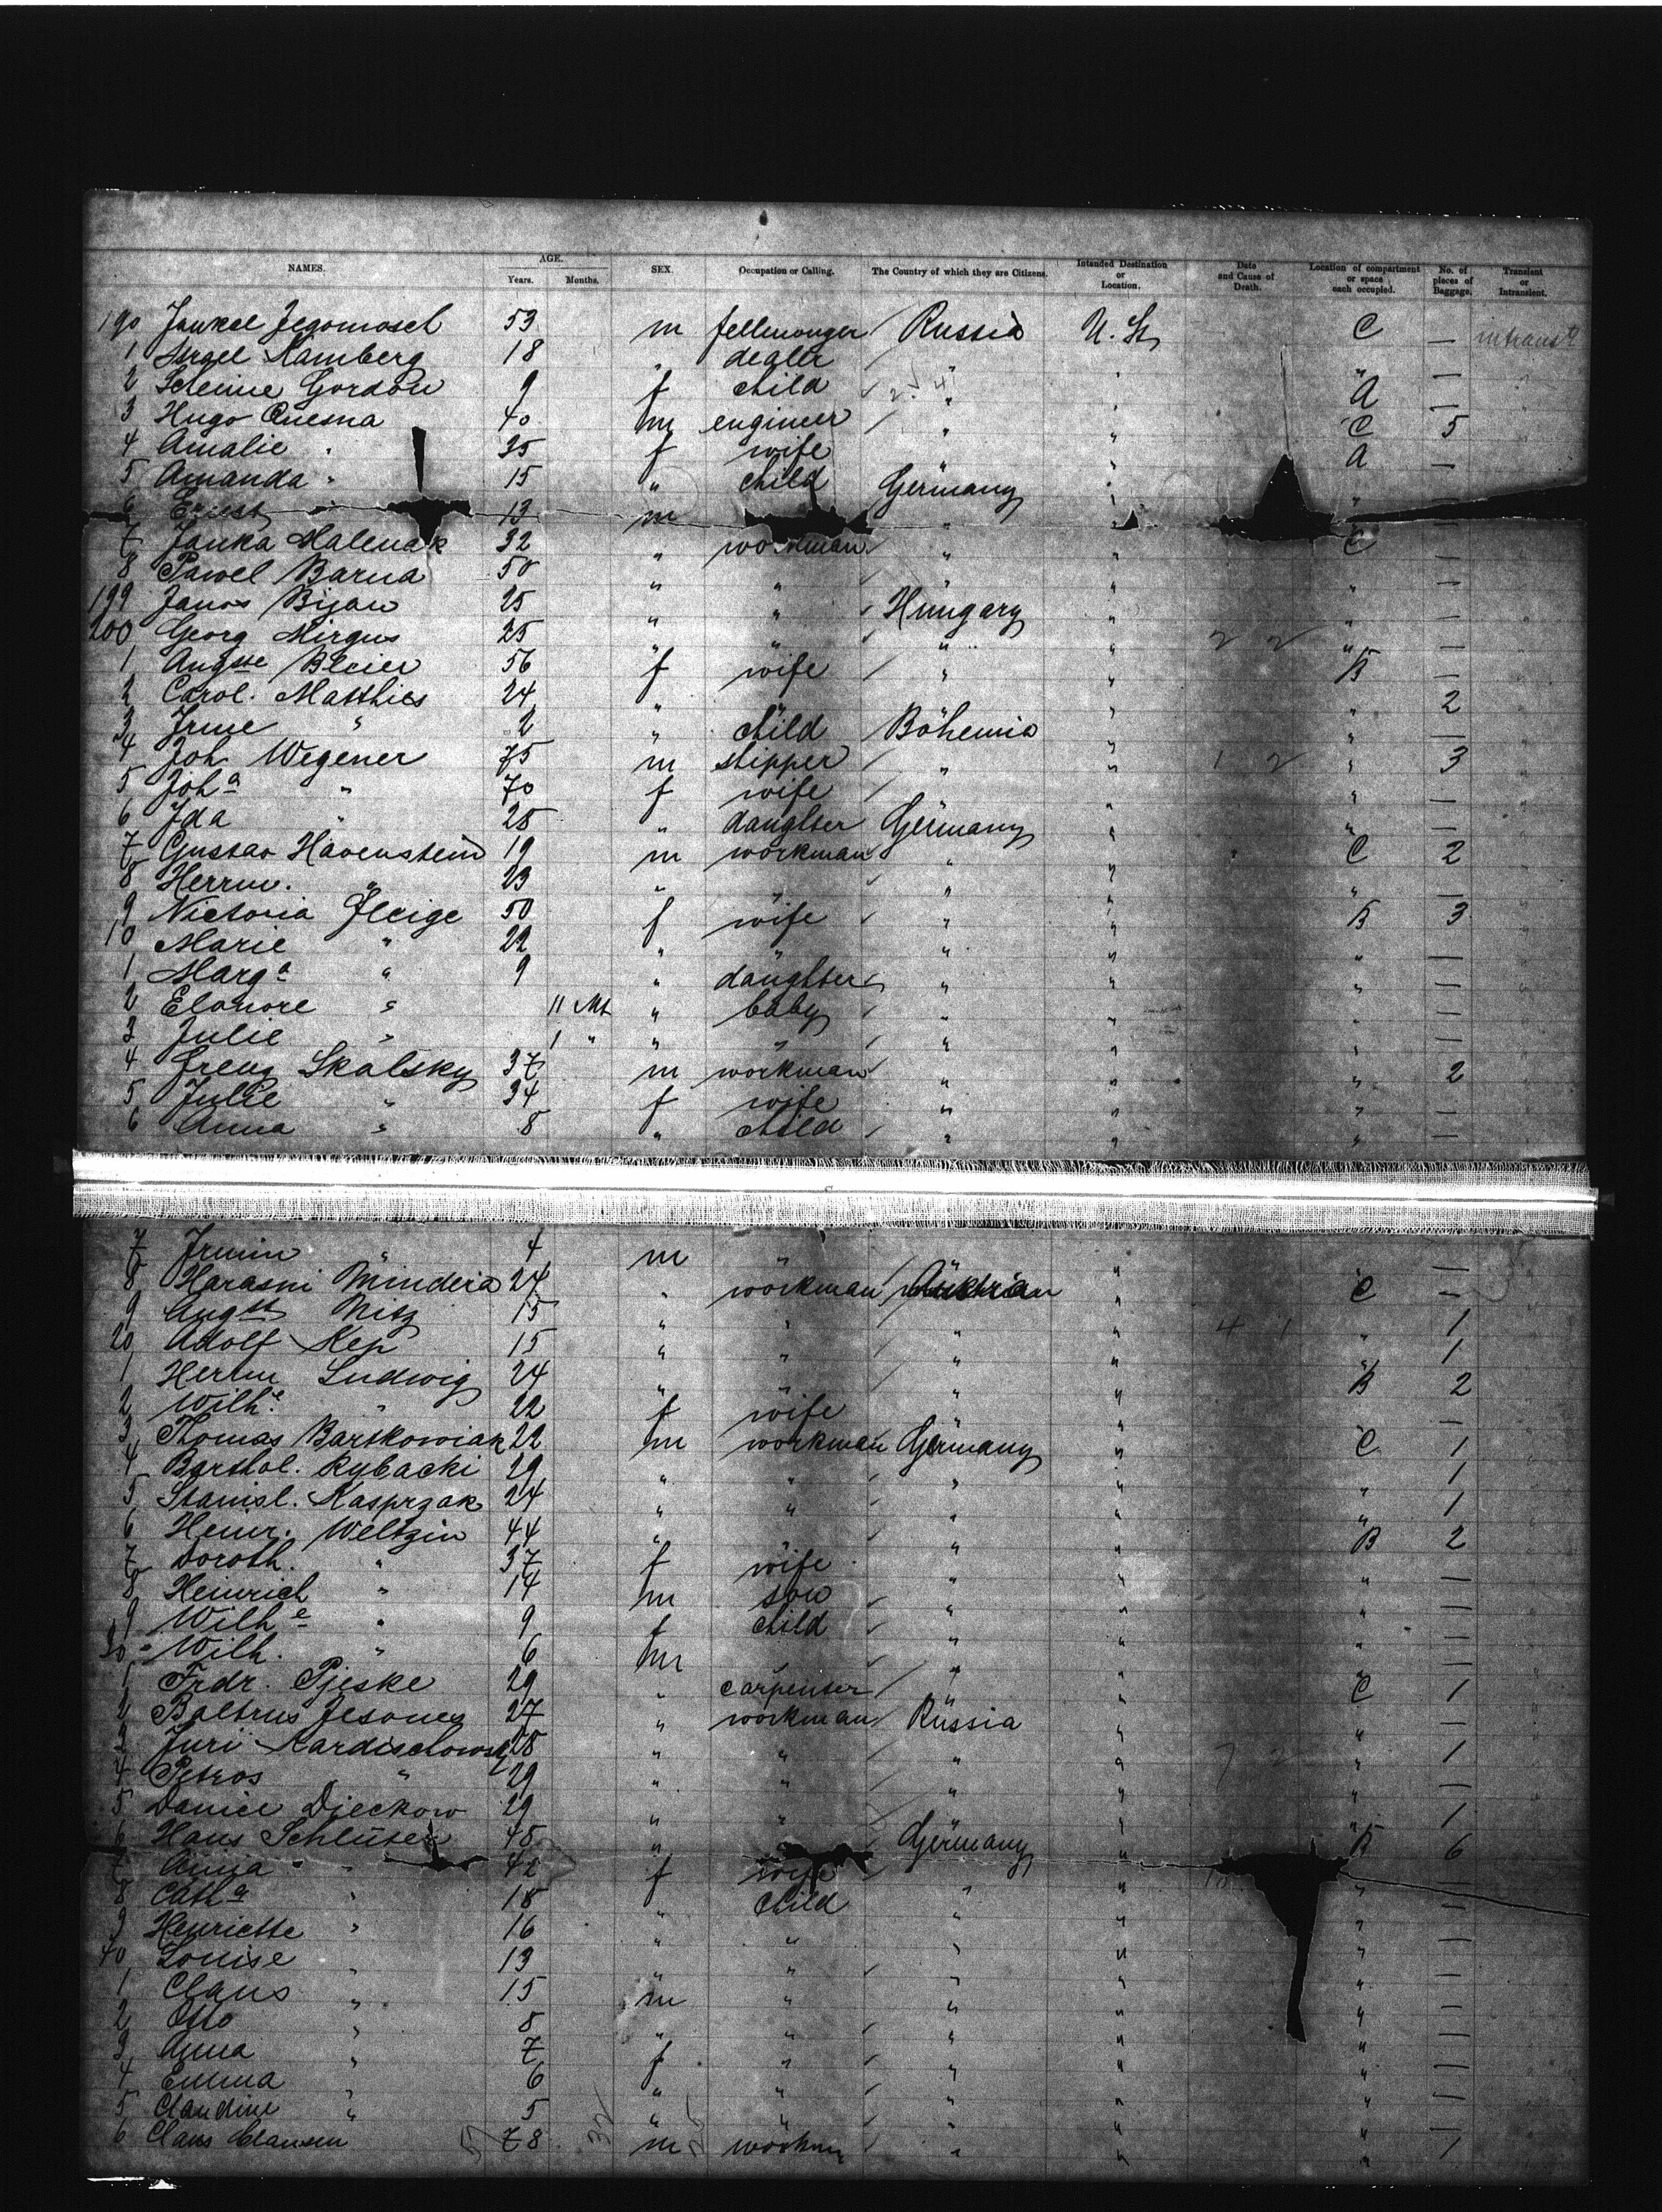 NAMES. AGE. Years. Months. SEX. Occupation or Calling. The Country of which they are Citizens. Intended Destination or Location. Date and Cause of Death. Location of compartment or space each occupied. No. of pieces of Baggage. Transient or Intransient.
190 Jankel Jegomosel 53 m fellmonger Russia U. St. C — intransit
1 Israel Kamberg 18 " dealer " " " —
2 Scheine Gordon 9 f child " " A —
3 Hugo Quesna 40 m engineer " " C 5
4 Amalie " 35 f wife " A —
5 Amanda " 15 " child Germany " " —
6 Ernst 13 m " " —
7 Janka Malenak 32 " workman " " C —
8 Pawel Barna 50 " " " " " —
199 Janos Bijan 25 " " Hungary " " —
200 Georg Mirgus 25 " " " " " —
1 Augste Bleier 56 f wife " " B —
2 Carol. Matthies 24 " " " 2
3 Irme " 2 " child Bohemia " " —
4 Joh Wegener 75 m skipper " " " 3
5 Joha " 70 f wife " " —
6 Ida " 28 " daughter Germany " " —
7 Gustav Havenstein 19 m workman " " C 2
8 Herrm. " 23 " " " " " —
9 Victoria Fleige 50 f wife " " B 3
10 Marie " 22 " " " " " —
1 Marga " 9 " daughter " " " —
2 Elonore " 11 Mt " baby " " " —
3 Julie " 1 " " " " " " —
4 Frenz Skalsky 37 m workman " " " 2
5 Julie " 34 f wife " " " —
6 Anna " 8 " child " " " —
7 Irmin " 4 m " " —
8 Harasni Mindera 24 " workman Austrian " C —
9 Augst Nitz 15 " " " " 1
20 Adolf Kep 15 " " " " " 1
1 Herm Ludwig 24 " " " " B 2
2 Wilhe " 22 f wife "
3 Thomas Bartkowiak 22 m workman Germany " C 1
4 Barthol. Rybacki 29 " " " " 1
5 Stanisl. Kasprzak 24 " " " " " 1
6 Heinr. Weltzin 44 " " " B 2
7 Doroth. " 37 f wife " " " —
8 Heinrich " 14 m son " " " —
9 Wilhe " 9 f child " " " —
30 Wilh. " 6 m " " " —
1 Frdr. Pjeske 29 " carpenter " " C 1
2 Baltrus 27 " workman Russia " " —
3 Juri 28 " " " " " 1
4 Petros " 29 " " " " " —
5 Daniel Djeckow 29 " " " " 1
6 Hans Schlüter 48 " Germany " B 6
7 Anna " 42 f wife " " —
8 Catha " 18 child " " " —
9 Henriette " 16 " " " " " —
40 Louise " 13 " " " " " —
1 Claus " 15 m " " " " —
2 Otto " 8 " " " " " —
3 Anna " 7 f " " " " —
4 Emma " 6 " " " " " —
5 Claudine " 5 " " " " " —
6 Claus Clausen 78 m workm " " " 1